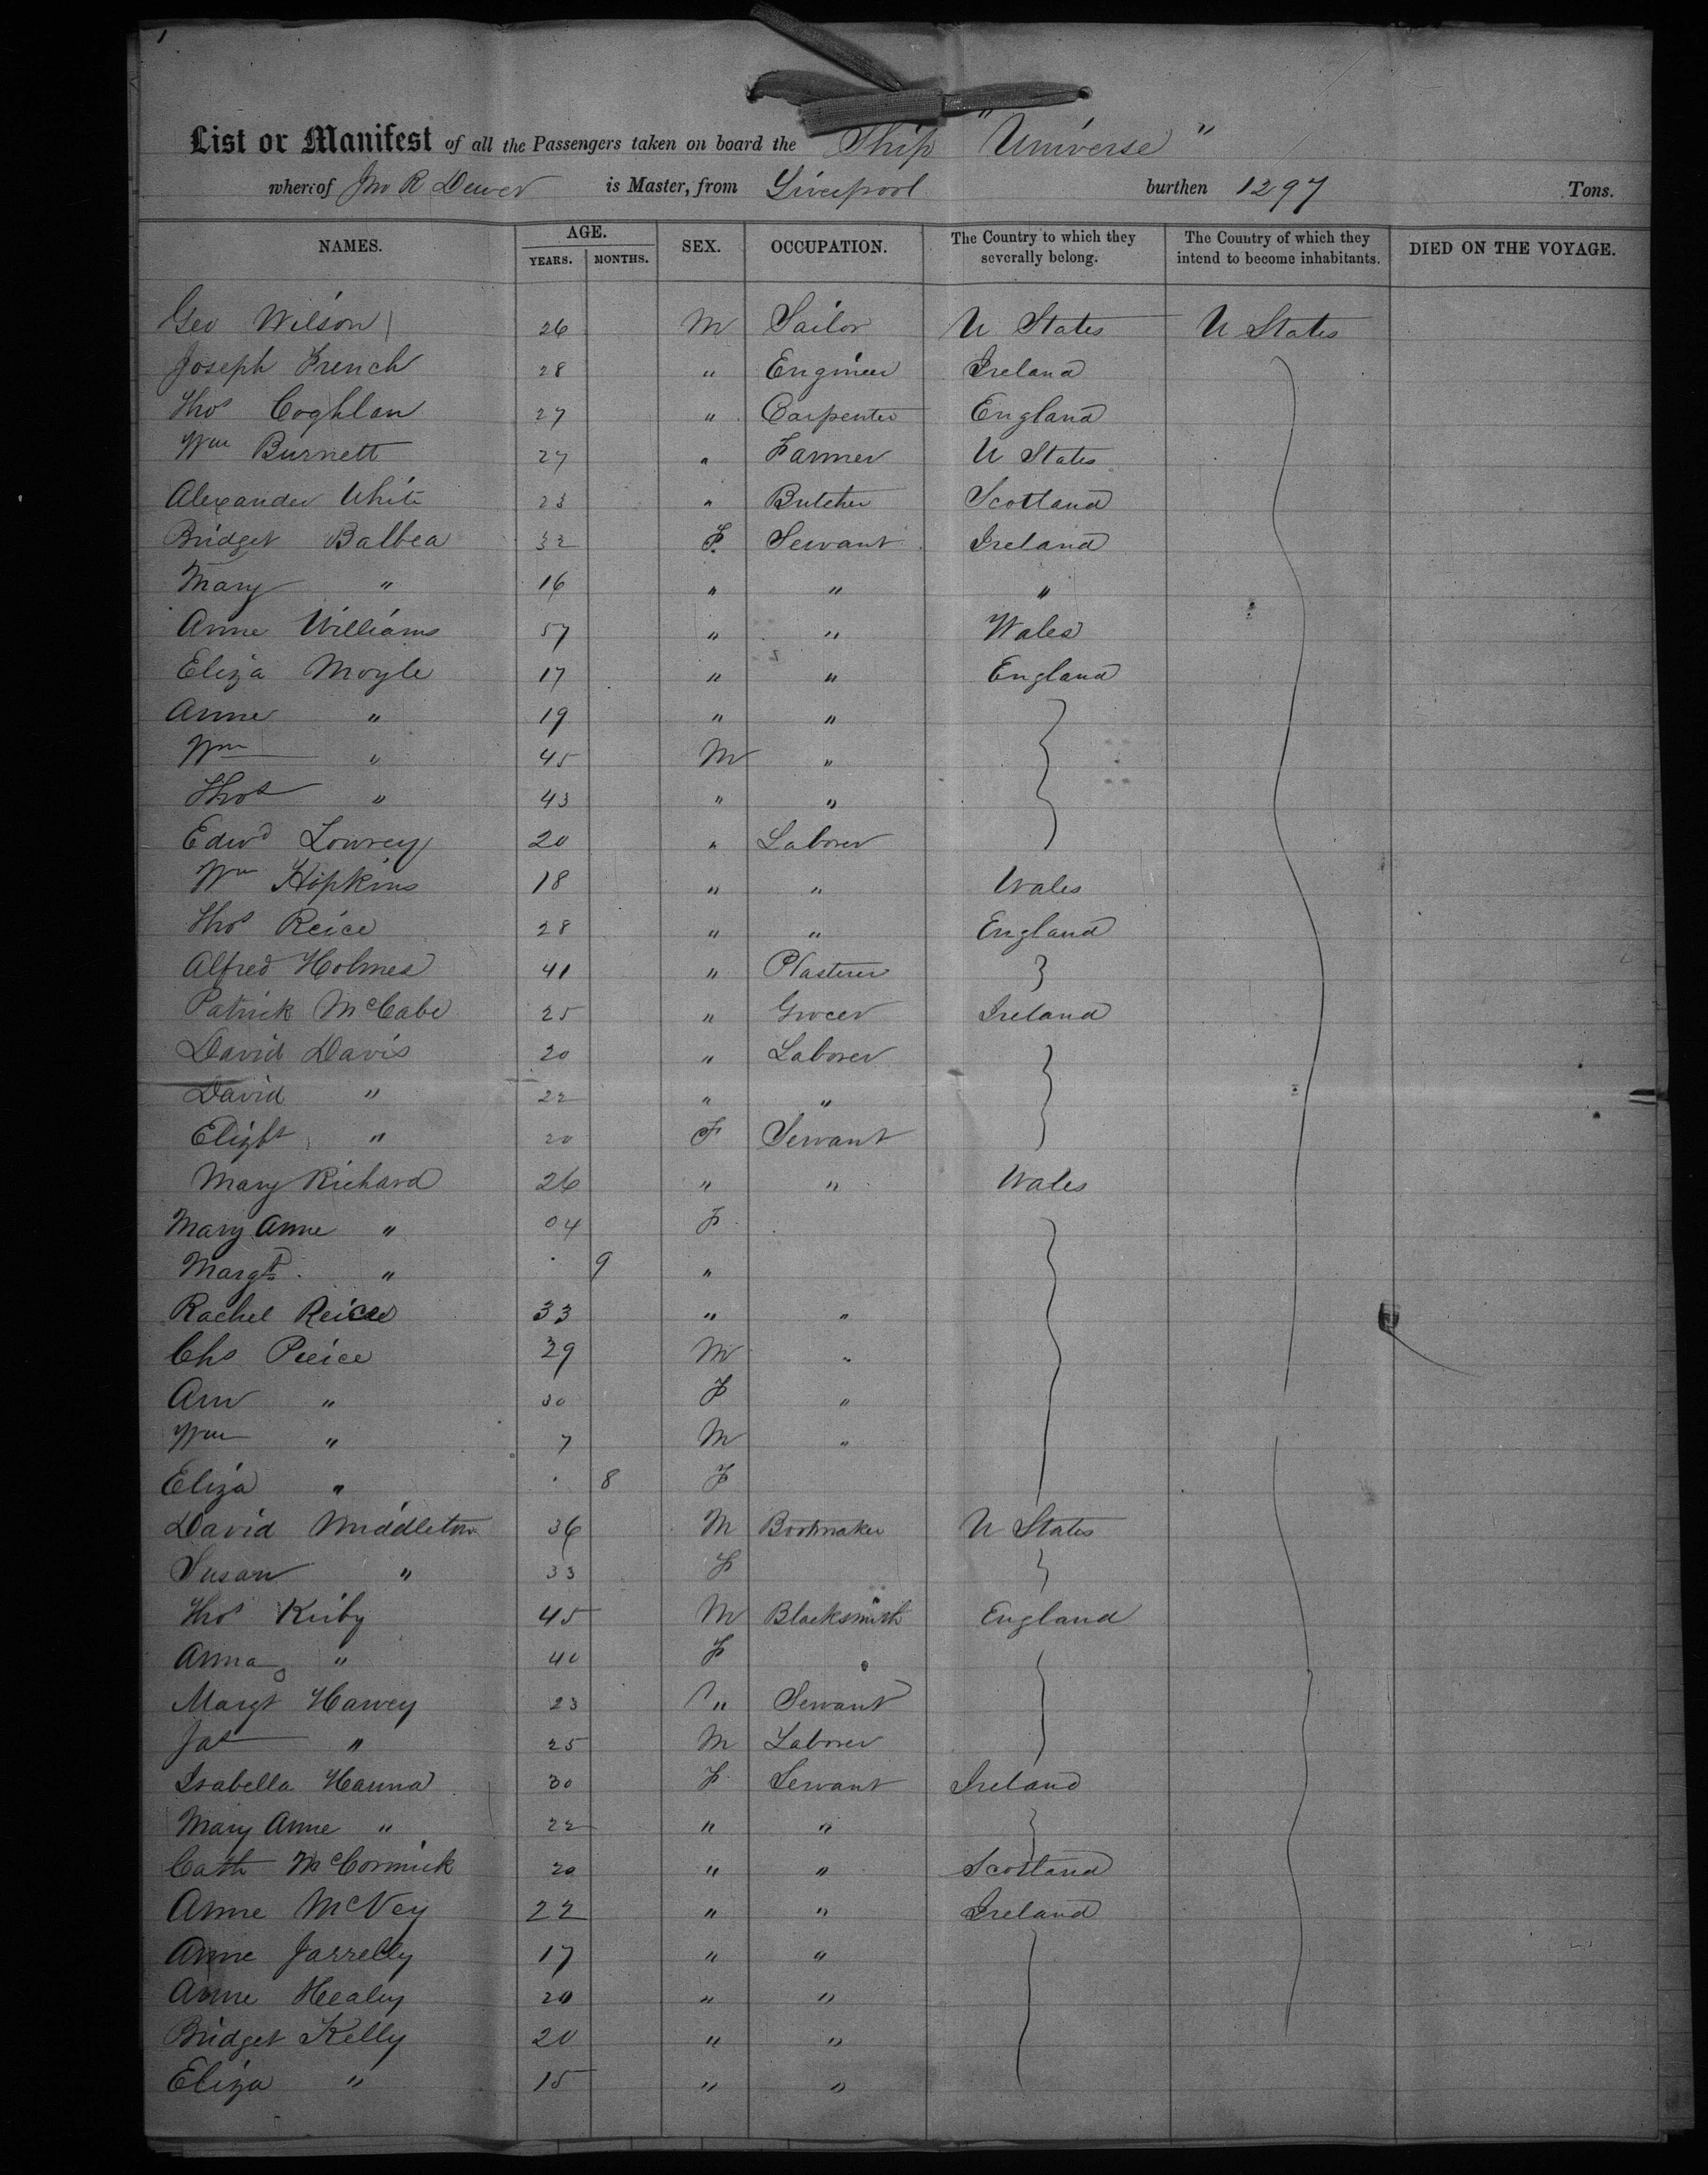 1
List or Manifest of all the Passengers taken on board the Ship "Universe"
whereof Jno R Dewer is Master, from Liverpool burthen 1297 Tons.
NAMES. AGE. YEARS. MONTHS. SEX. OCCUPATION. The Country to which they severally belong. The Country of which they intend to become inhabitants. DIED ON THE VOYAGE.
Geo Wilson 26 M Sailor U States U States
Joseph French 28 " Engineer Ireland
Thos Coghlan 27 " Carpenter England
Wm Burnett 27 " Farmer U States
Alexander White 23 " Butcher Scotland
Bridget Balbea 32 F. Servant Ireland
Mary " 16 " " "
Anne Williams 57 " " Wales
Eliza Moyle 17 " " England
Anne " 19 " "
Wm " 45 M "
Thos " 43 " "
Edwd Lowrey 20 " Laborer
Wm Hopkins 18 " " Wales
Thos Reice 28 " " England
Alfred Holmes 41 " Plasterer
Patrick McCabe 25 " Grocer Ireland
David Davis 20 " Laborer
David " 22 " "
Elizbt " 20 F Servant
Mary Richard 26 " " Wales
Mary Anne " 04 F
Margt " 9 "
Rachel 33 " "
Chs Preice 29 M "
Ann " 30 F "
Wm " 7 M "
Eliza " 8 F
David Middleton 36 M Bootmaker U States
Susan " 33 F
Thos Kirby 45 M Blacksmith England
Anna " 40 F
Margt Harvey 23 " Servant
Jas " 25 M Laborer
Isabella Hanna 30 F Servant Ireland
Mary Anne " 22 " "
Cath McCormick 20 " " Scotland
Anne McVey 22 " " Ireland
Anne Farrelly 17 " "
Anne Healey 20 " "
Bridget Kelly 20 " "
Eliza " 15 " "